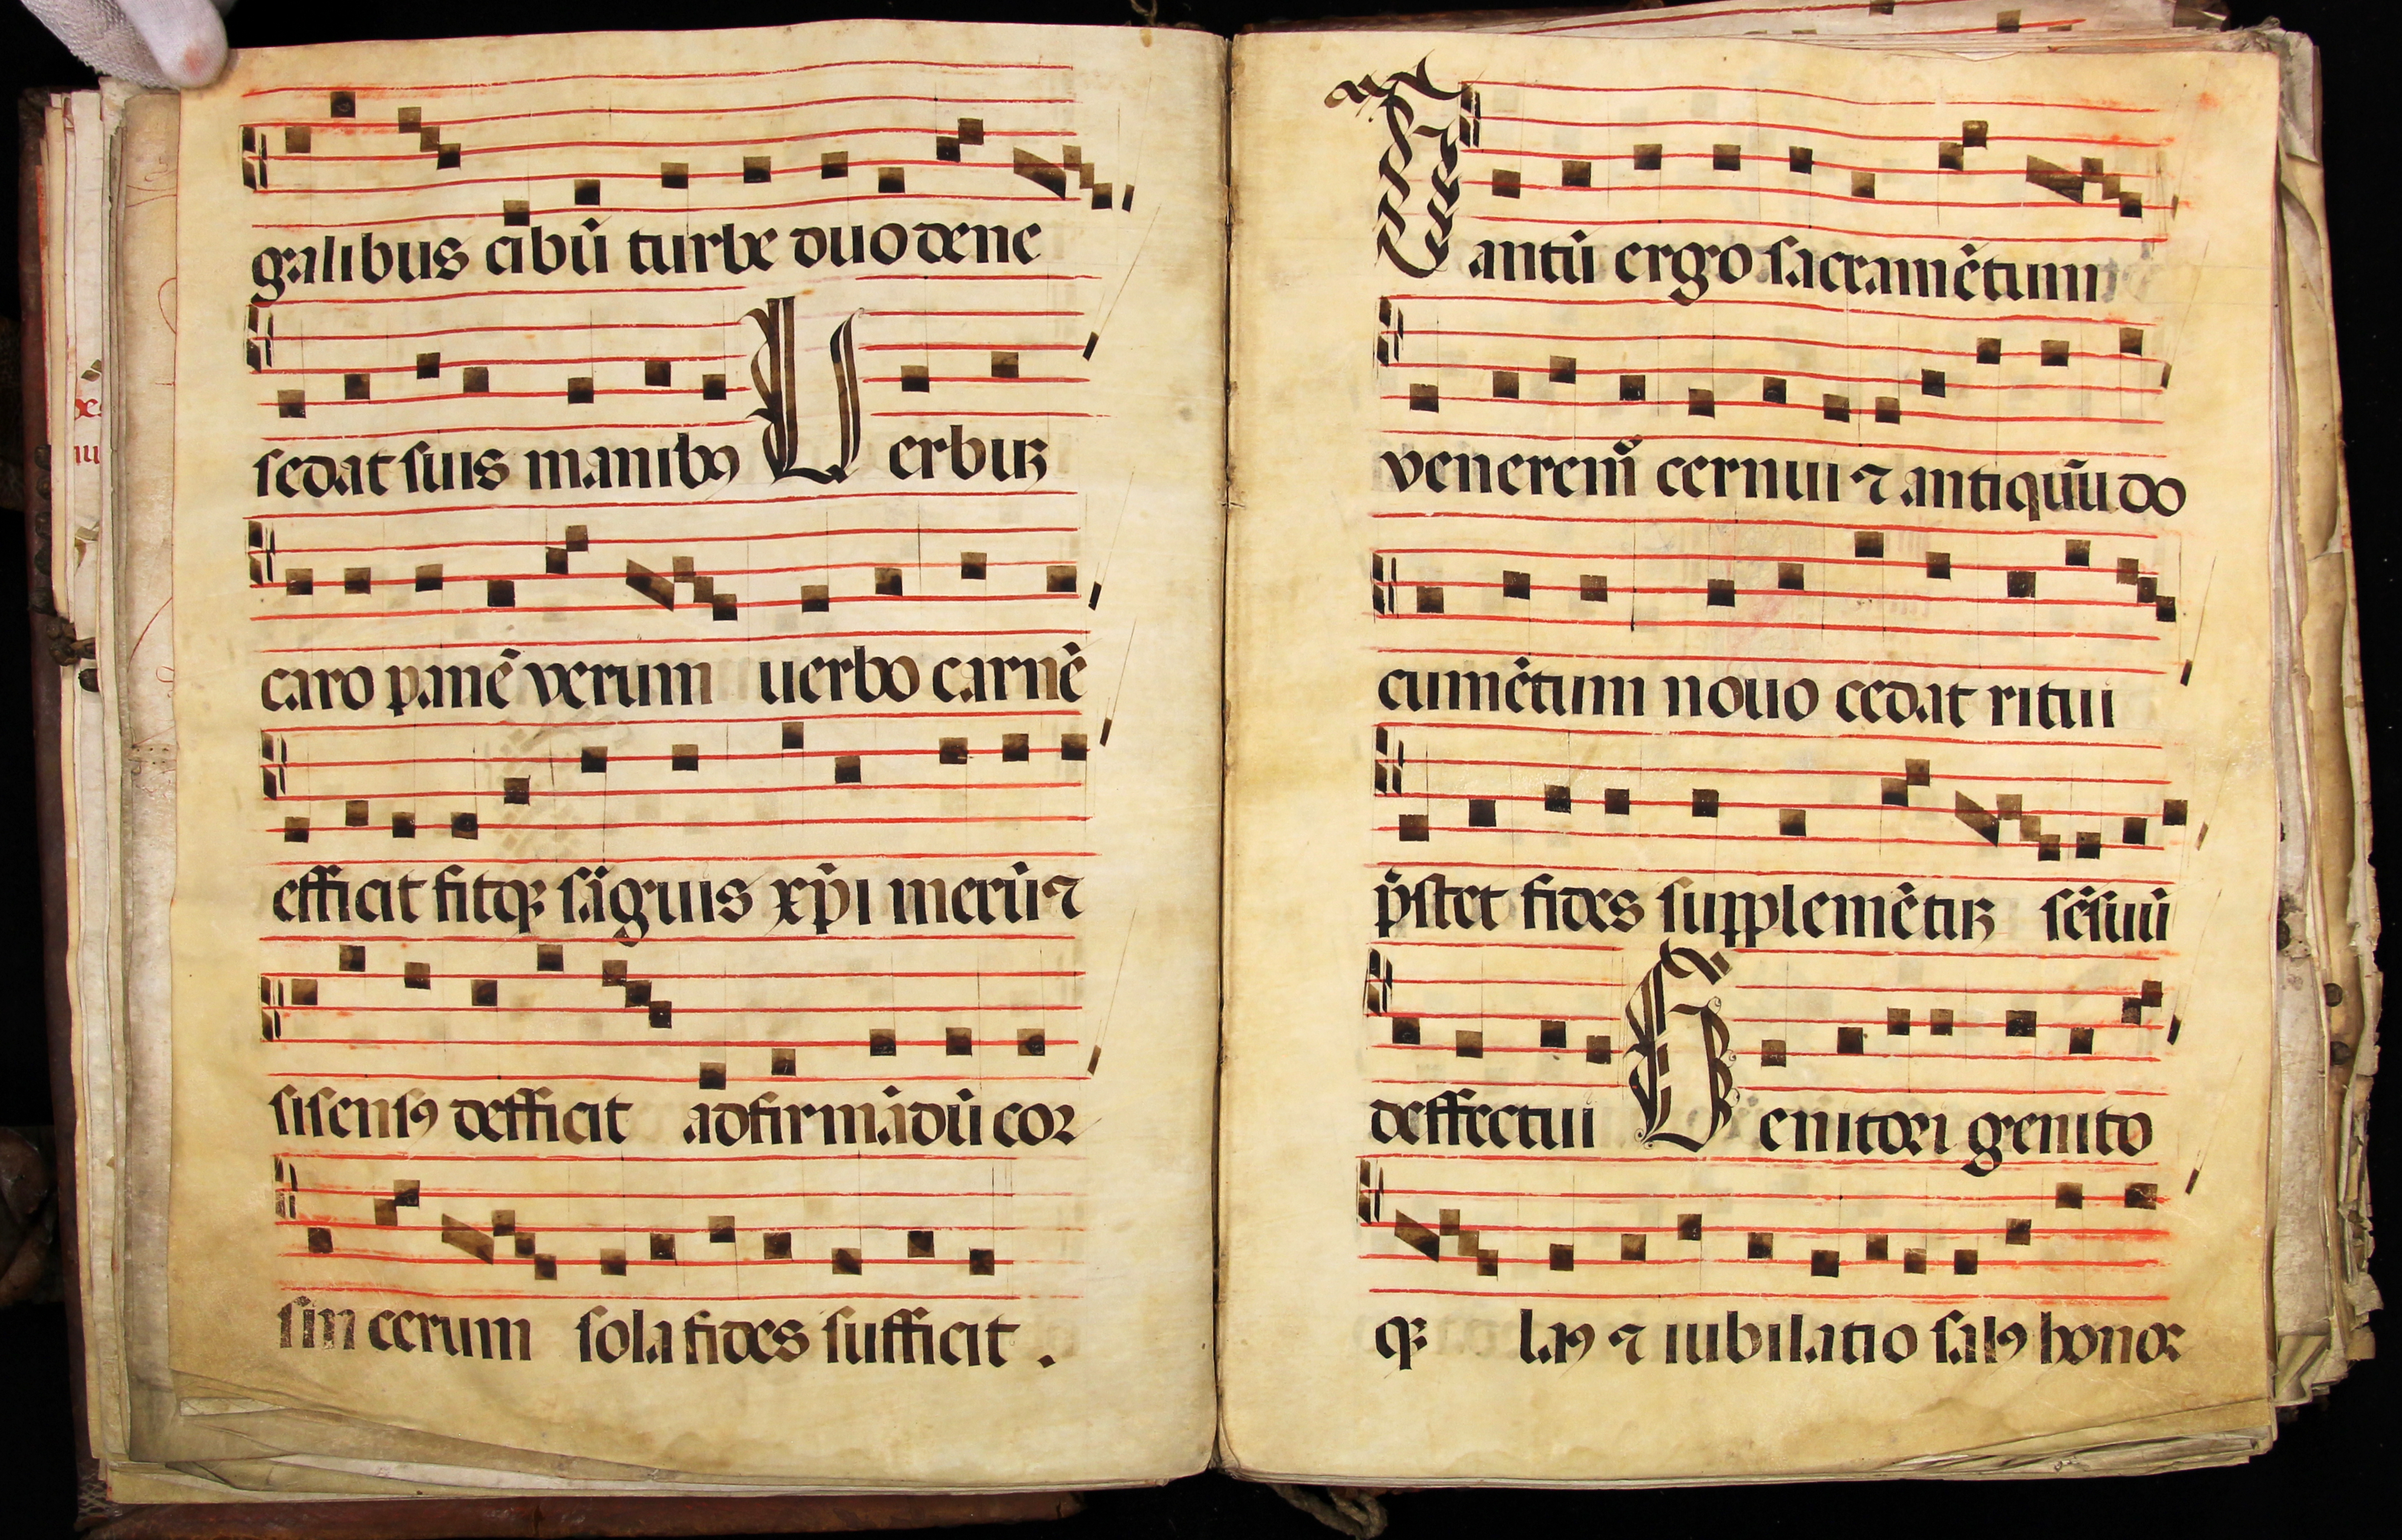 galibus cibū turbe duodene
sedat suis manibꝯ Verbuꝫ
caro panē verum uerbo carnē
efficit fitqꝫ sāguis xp̄i merū ⁊
si sensꝯ defficit ad firmādū cor
sin cerum sola fides sufficit .
Tantū ergo sacramētum
veneremꝰ cernui ⁊ antiquū do
cumētum nouo cedat ritui
p̄stet fides supplemētuꝫ sēsuū
deffectui Genitori genito
qꝫ laꝯ ⁊ iubilatio salꝯ honor